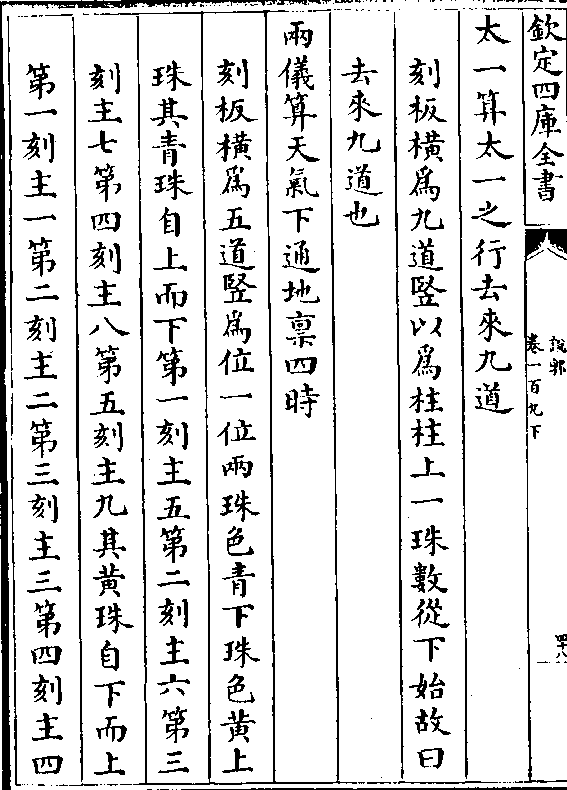 欽定四庫全書
說郛
卷一百九下
四十八
太一算太一之行去來九道
刻板橫爲九道豎以爲柱柱上一珠數從下始故曰
去來九道也
兩儀算天氣下通地稟四時
刻板橫爲五道豎爲位一位兩珠色青下珠色黃上
珠其青珠自上而下第一刻主五第二刻主六第三
刻主七第四刻主八第五刻主九其黃珠自下而上
第一刻主一第二刻主二第三刻主三第四刻主四